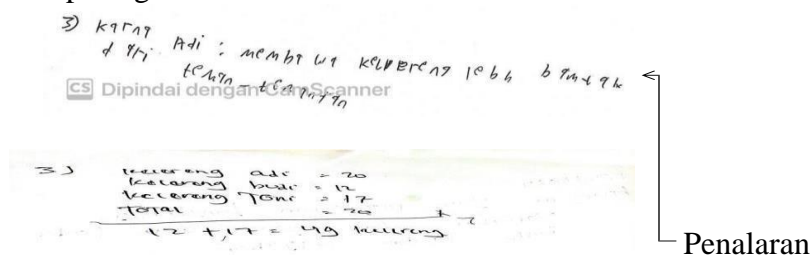 3) karna Adi : membawa kelereng lebh banyak
dari teman-temannya
CS Dipindai dengan CamScanner
3) kelereng adi = 20
kelereng budi = 12
kelereng Toni = 17
Total = 20
12 + 17 = 49 kelereng
Penalaran